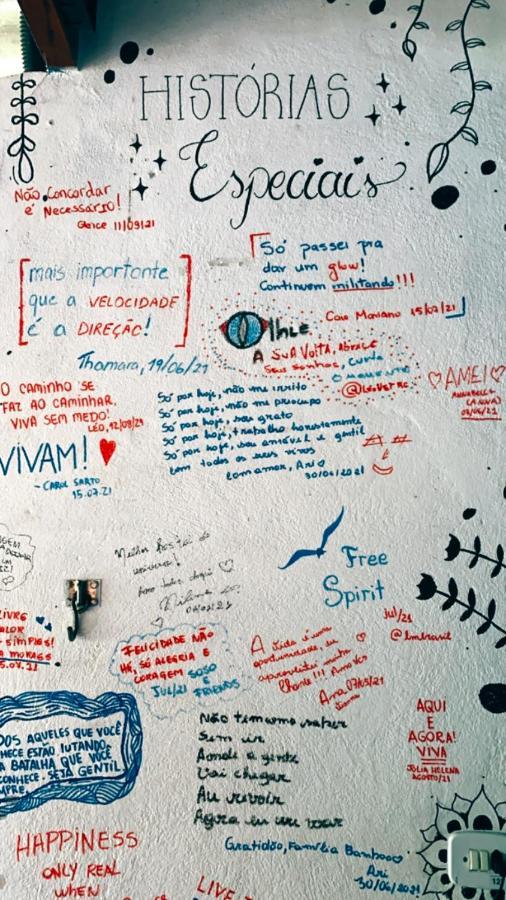 HISTÓRIAS
Especiais
Não Concordar
é Necessário!
Gleice 11/09/21
mais importante
que a VELOCIDADE
é a DIREÇÃO!
Thamara, 19/06/21
Só passei pra
dar um glow!
Continuem militando!!!
Caio Mariano 15/07/21
Olhe
A SUA VOLTA, ABRACE
Seus sonhos, curta
O MOMENTO
AMEI
O CAMINHO SE
FAZ AO CAMINHAR,
VIVA SEM MEDO!
LÉO, 12/08/21
VIVAM!
- CAROL SARTO
15.07.21
Só por hoje, não me irrito
Só por hoje, não me preocupo
Só por hoje, sou grato
Só por hoje, trabalho honestamente
Só por hoje, sou amável e gentil
com todos os seres vivos
Com amor, Ari
30/06/2021
Melhor hostel do
universo!
Free
Spirit
jul/21
LIVRE
simples!
FELICIDADE NÃO
HÁ, SÓ ALEGRIA E
CORAGEM SOSO
JUL/21 E
FRIENDS
A vida é uma
oportunidade, eu
aproveitei minha
chance!!!
Ana 07/05/21
AQUI
E
AGORA!
VIVA
JÚLIA HELENA
AGOSTO/21
DOS AQUELES QUE VOCÊ
HECE ESTÃO LUTANDO
A BATALHA QUE VOCÊ
CONHECE. SEJA GENTIL
MPRE.
Não temamos saber
Sem ir
Aonde a gente
Vai chegar
Au revoir
Agora eu vou voar
Gratidão, Família Bamboo
Ari
30/06/2021
HAPPINESS
ONLY REAL
WHEN
LIVE